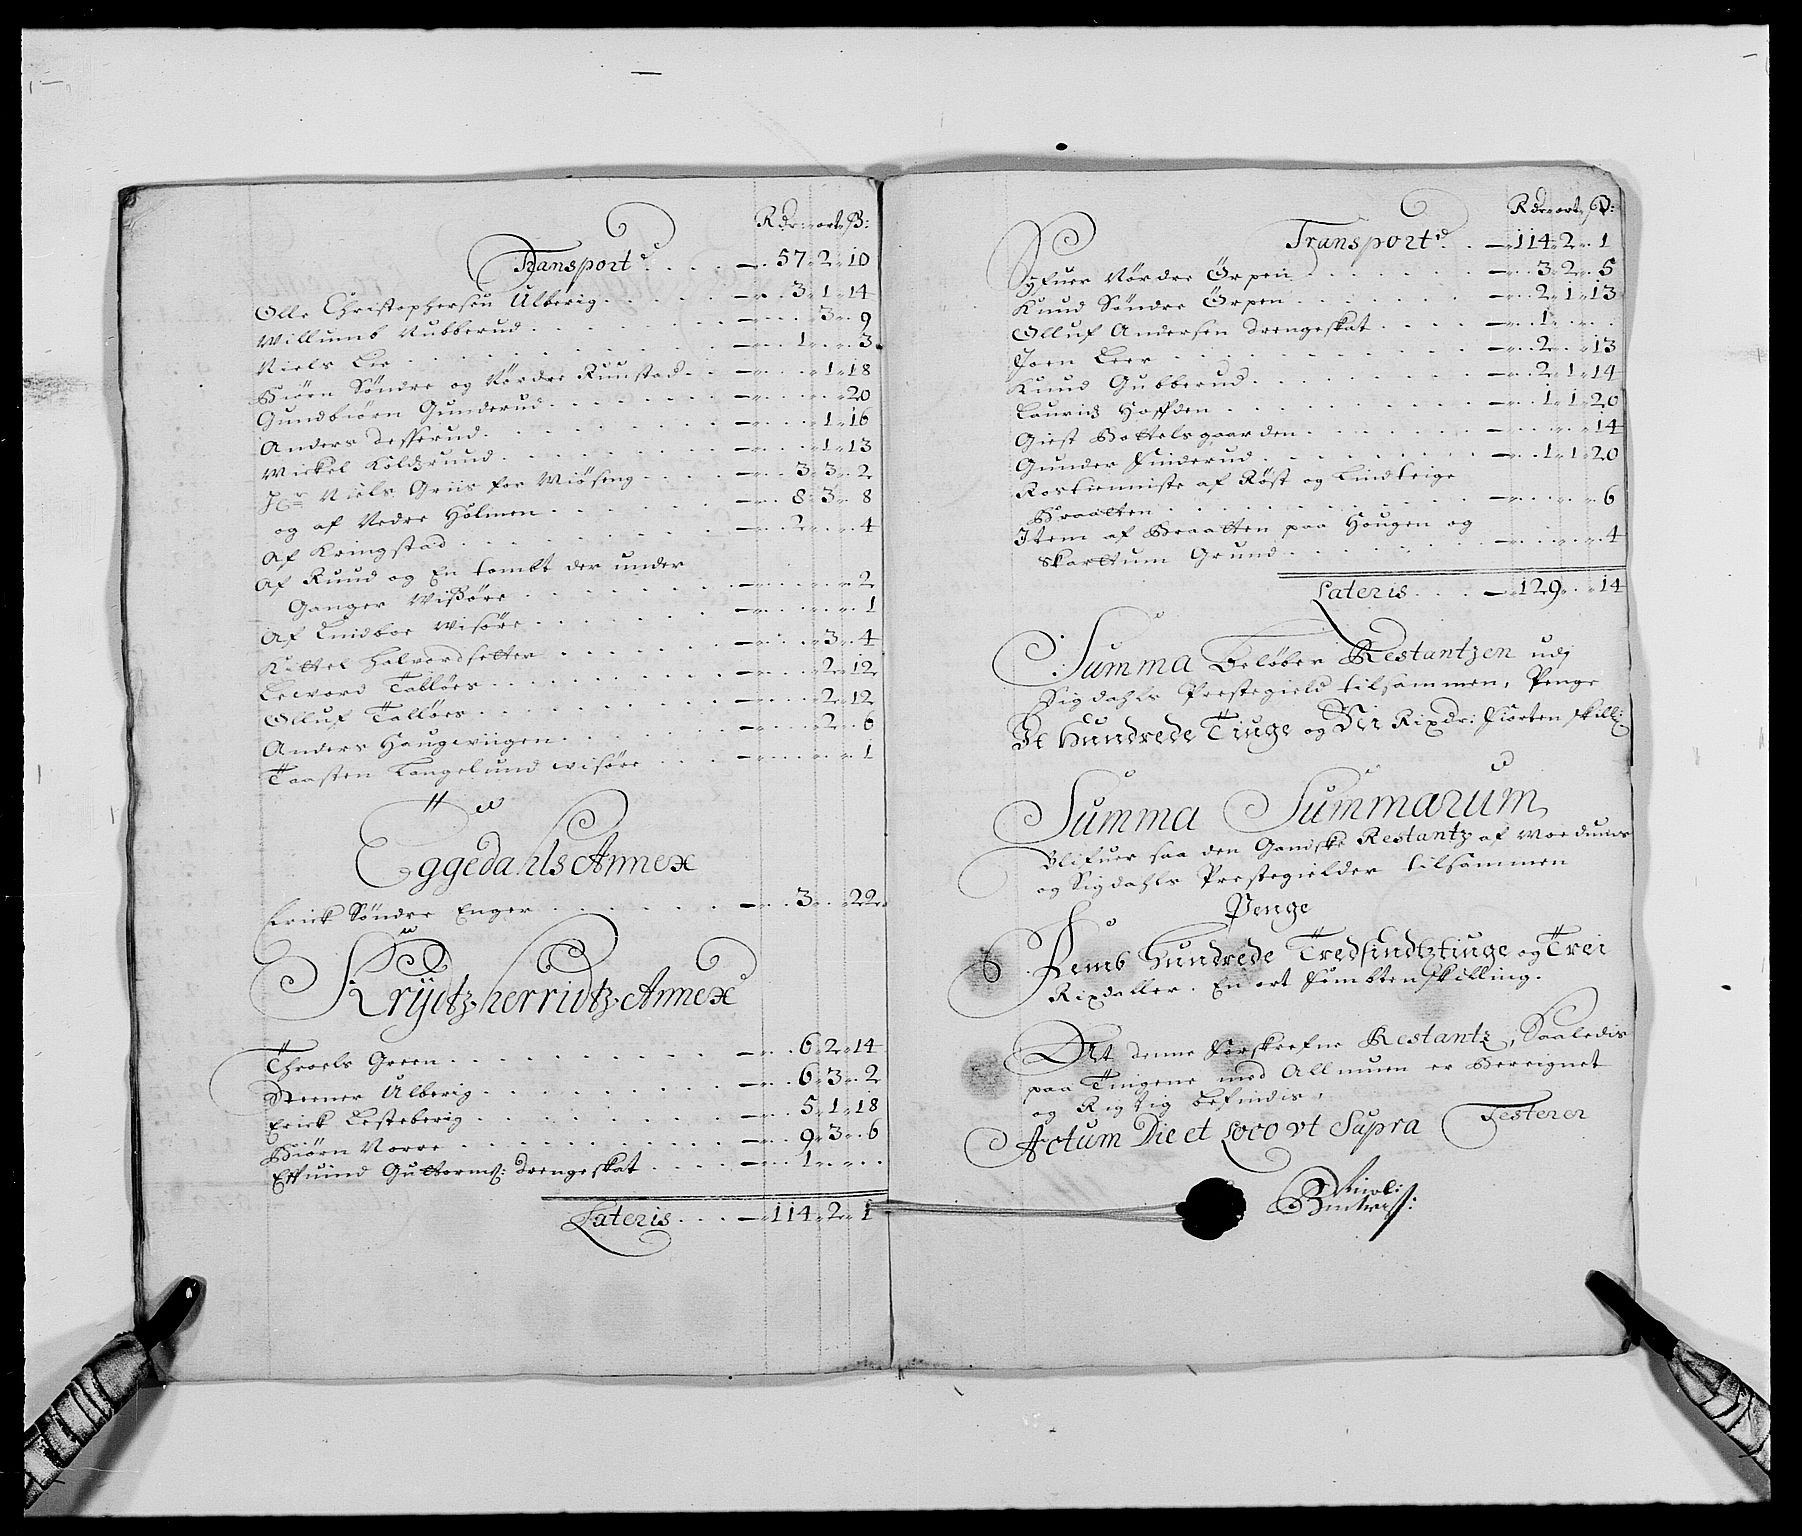 Rdr ort ß:
Transport . . . . 57 2 10
Olle Christophersøn Ulberig . . . . . 3 1 14
Willumb Nubberud . . . . . . . 3 9
Niels Lie . . . . . . . . . 1 3
Biörn Söndre og Nördre Ruustad . . 1 18
Gundbiörn Gunderud . . . . . . 20
Anders Tesserud . . . . . . . 1 16
Mickel Koldzrund . . . . . . . 1 13
Hr Niels Griis for Miöseng . . . . 3 3 2
og af Nedre Holmen . . . . . . 8 3 8
Af Kringstad . . . . . . . . 2 4
Af Ruud og En tombt der under
Ganger Wißöre . . . . . . . 2
Af Lindboe Wisöre . . . . . . 1
Kittel Halvordsetter . . . . . . 3 4
Leivord Tolløes . . . . . . . 2 12
Olluf Tolløes . . . . . . . . 2 12
Anders Haugeviigen . . . . . . 2 6
Taasten Langelund wisöre . . . . 1
Eggedahls Annex
Erick Söndre Enger . . . . . . 3 22
Krijdtzherridtz Annex
Throels Green . . . . . . . . 6 2 14
Steener Ulberig . . . . . . . 6 3 2
Erick Lesteberig . . . . . . . 5 1 18
Biörn Norre . . . . . . . . . 9 3 6
Effuind Guttormß: drengeskat . . . . 1
Lateris . . . . 114 2 1
Rdr ort ß:
Transport . . 114 2 1
Syfuer Nördre Örpen . . . . . . 3 2 5
Knud Söndre Örpen . . . . . . 2 1 13
Olluf Andersen drengeskat . . . . 1
Joen Leer . . . . . . . . . 2 13
Knud Gubberud . . . . . . . . 2 1 14
Lauridz Hoffden . . . . . . . . 1 1 20
Giest Bottelsgaarden . . . . . . 14
Gunder Finderud . . . . . . . 1 1 20
af Röst og Lindteige
Braatten . . . . . . . . . 6
Item af Braatten paa Hougen og
Skarttum Grund . . . . . . . 4
Lateris . . . 129 14
Summa Beløber Restantzen udj
Sigdahls Prestegield tilsammen, Penge
It Hundrede Tiuge og Nie Rixdr: Fiorten skill:
Summa Summarum
Blifuer saa den Gandske Restantz af Moedumbs
og Sigdahls Prestegielder tilsammen
Penge
Femb Hundrede Tredsindtztiuge og Trei
Rixdaller. En ort Fembten skilling.
At denne Forskrefne Restantz, Saaledis
paa Tingene med Allmuen er Bereignet
og Rigtig befindis,
Actum Die et Loco vt Supra Testerer